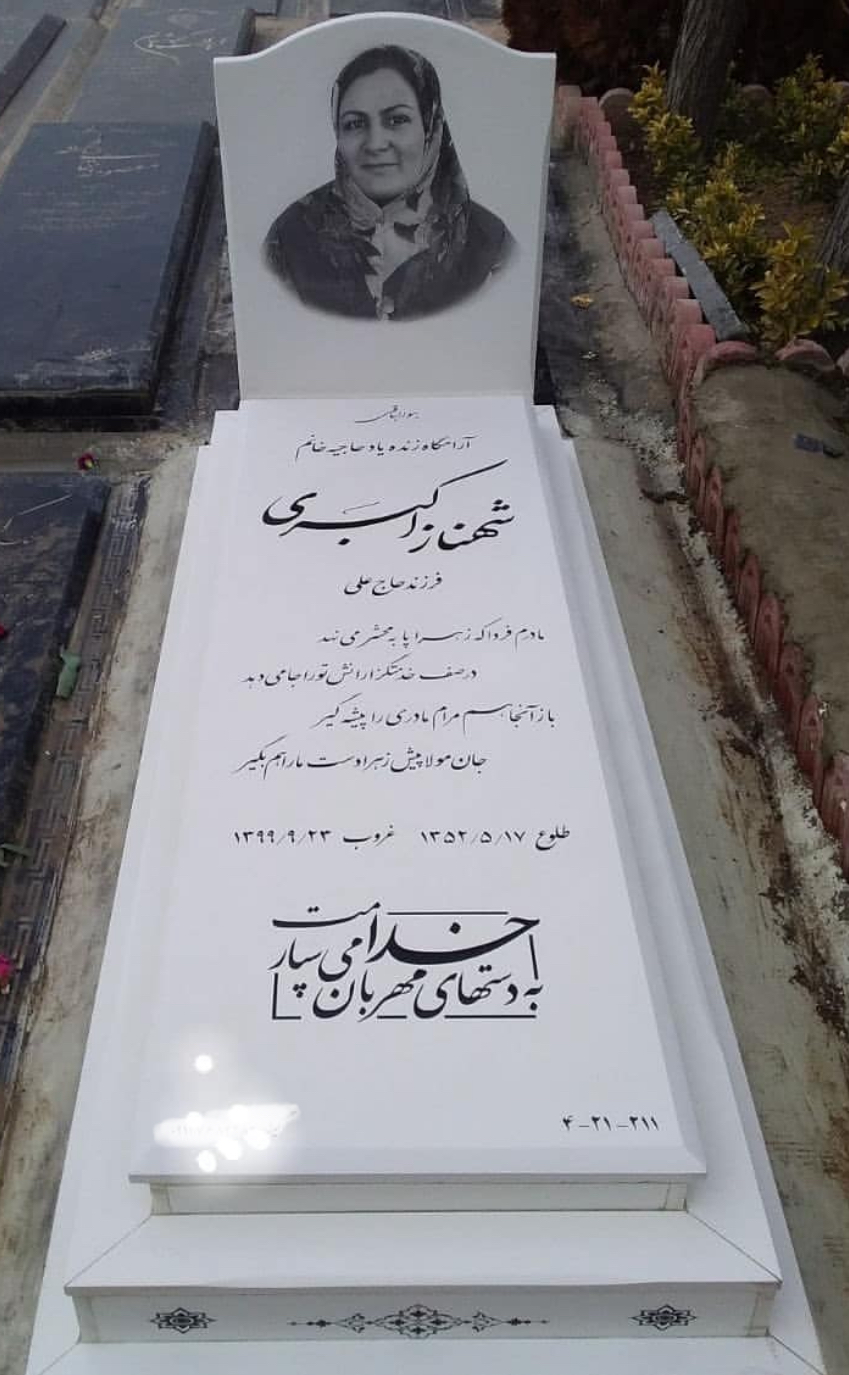 هوالباقی
آرامگاه زنده یاد حاجیه خانم
شهناز اکبری
فرزند حاج علی
مادرم فردا که زهرا پا به محشر می نهد
در صف خدمتگزارانش تو را جا می دهد
باز آنجا هم مرام مادری را پیشه گیر
جان مولا پیش زهرا دست ما را هم بگیر
طلوع ۱۳۵۲/۵/۱۷ غروب ۱۳۹۹/۹/۲۳
به دستهای مهربان خدا می سپارمت
۴-۲۱-۲۱۱